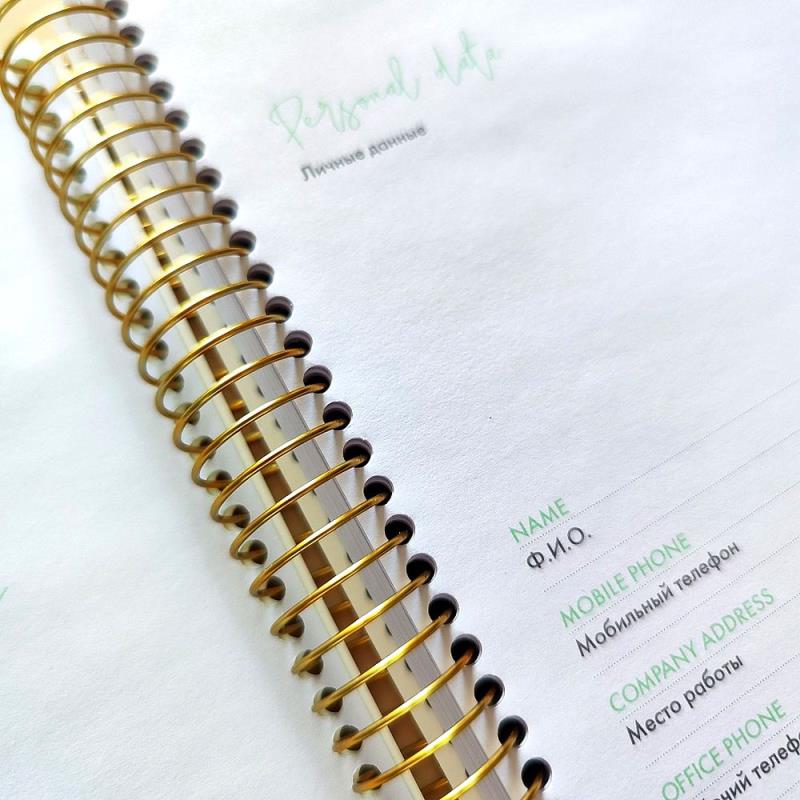 Personal data
Личные данные
NAME
Ф.И.О.
MOBILE PHONE
Мобильный телефон
COMPANY ADDRESS
Место работы
OFFICE PHONE